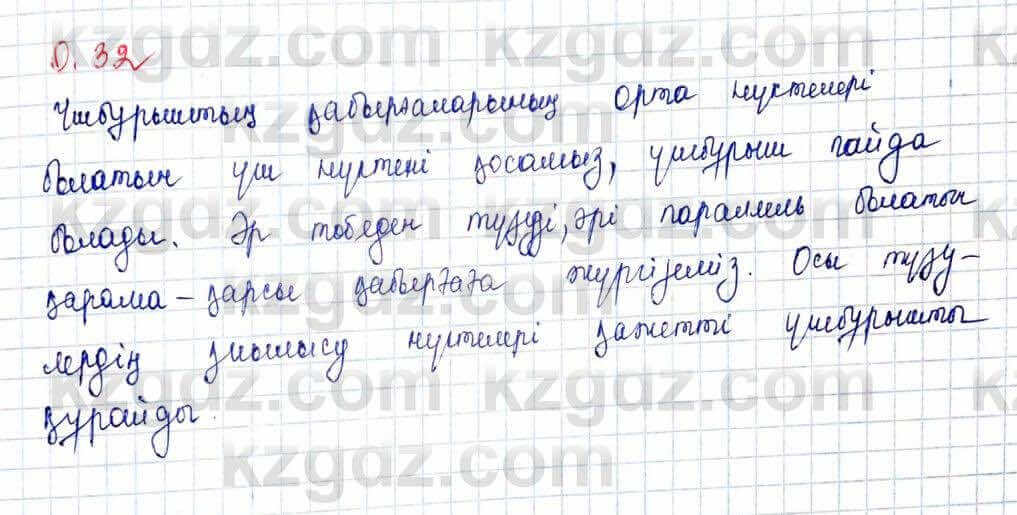 0.32
Үшбұрыштың қабырғаларының орта нүктелері
болатын үш нүктені қосамыз, үшбұрыш пайда
болады. Әр төбеден түзуді, әрі параллель болатын
қарама-қарсы қабырғаға жүргіземіз. Осы түзу-
лердің қиылысу нүктелері қажетті үшбұрышты
құрайды.
kzgdz.com kzgdz.com
kzgdz.com kzgdz.com
kzgdz.com kzgdz.com
kzgdz.com kzgdz.com
kzgdz.com kzgdz.com
kzgdz.com